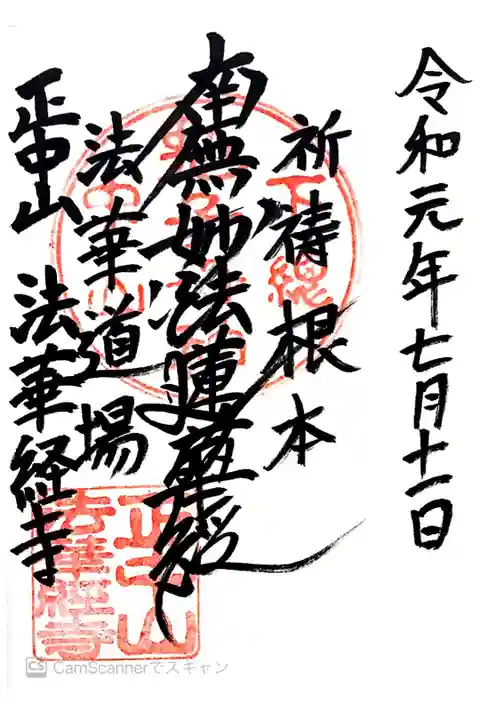 令和元年七月十一日
祈祷根本
南無妙法蓮華経
法華道場
正中山 法華経寺
正中山
法華経寺
CamScannerでスキャン